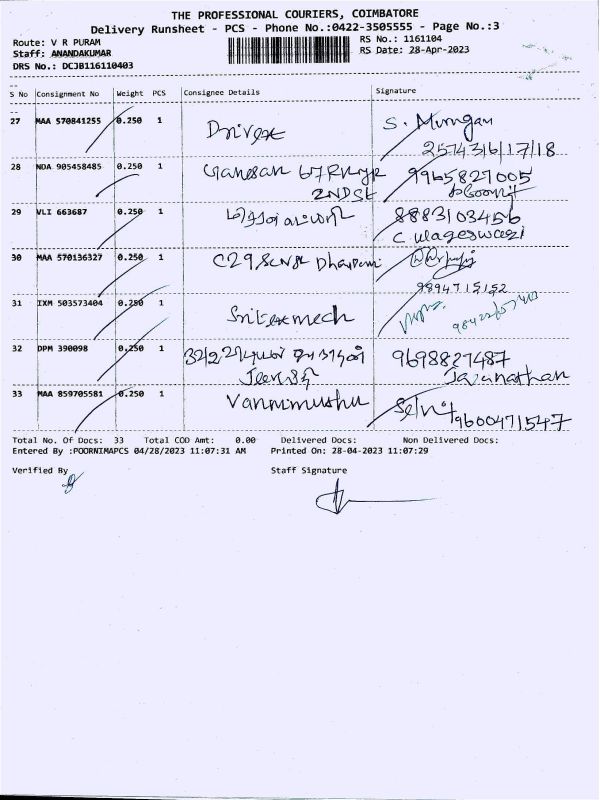 THE PROFESSIONAL COURIERS, COIMBATORE
Delivery Runsheet - PCS - Phone No.:0422-3505555 - Page No.:3
Route: V R PURAM
RS No.: 1161104
Staff: ANANDAKUMAR
RS Date: 28-Apr-2023
DRS No.: DCJB116110403
S No Consignment No Weight PCS Consignee Details Signature
27 MAA 570841255 0.250 1 S. Murugan
2574316/17/18
28 NDA 905458485 0.250 1 Ganesan 67 9965827005
2ND St
29 VLI 663687 0.250 1 8883103456
C. ulageswari
30 MAA 570136327 0.250 1 C29
9894715152
31 IXM 503573404 0.250 1
32 DPM 390098 0.250 1 9698827487
33 MAA 859705581 0.250 1 Vannimuthu 9600471547
Total No. Of Docs: 33 Total COD Amt: 0.00 Delivered Docs: Non Delivered Docs:
Entered By :POORNIMAPCS 04/28/2023 11:07:31 AM Printed On: 28-04-2023 11:07:29
Verified By Staff Signature